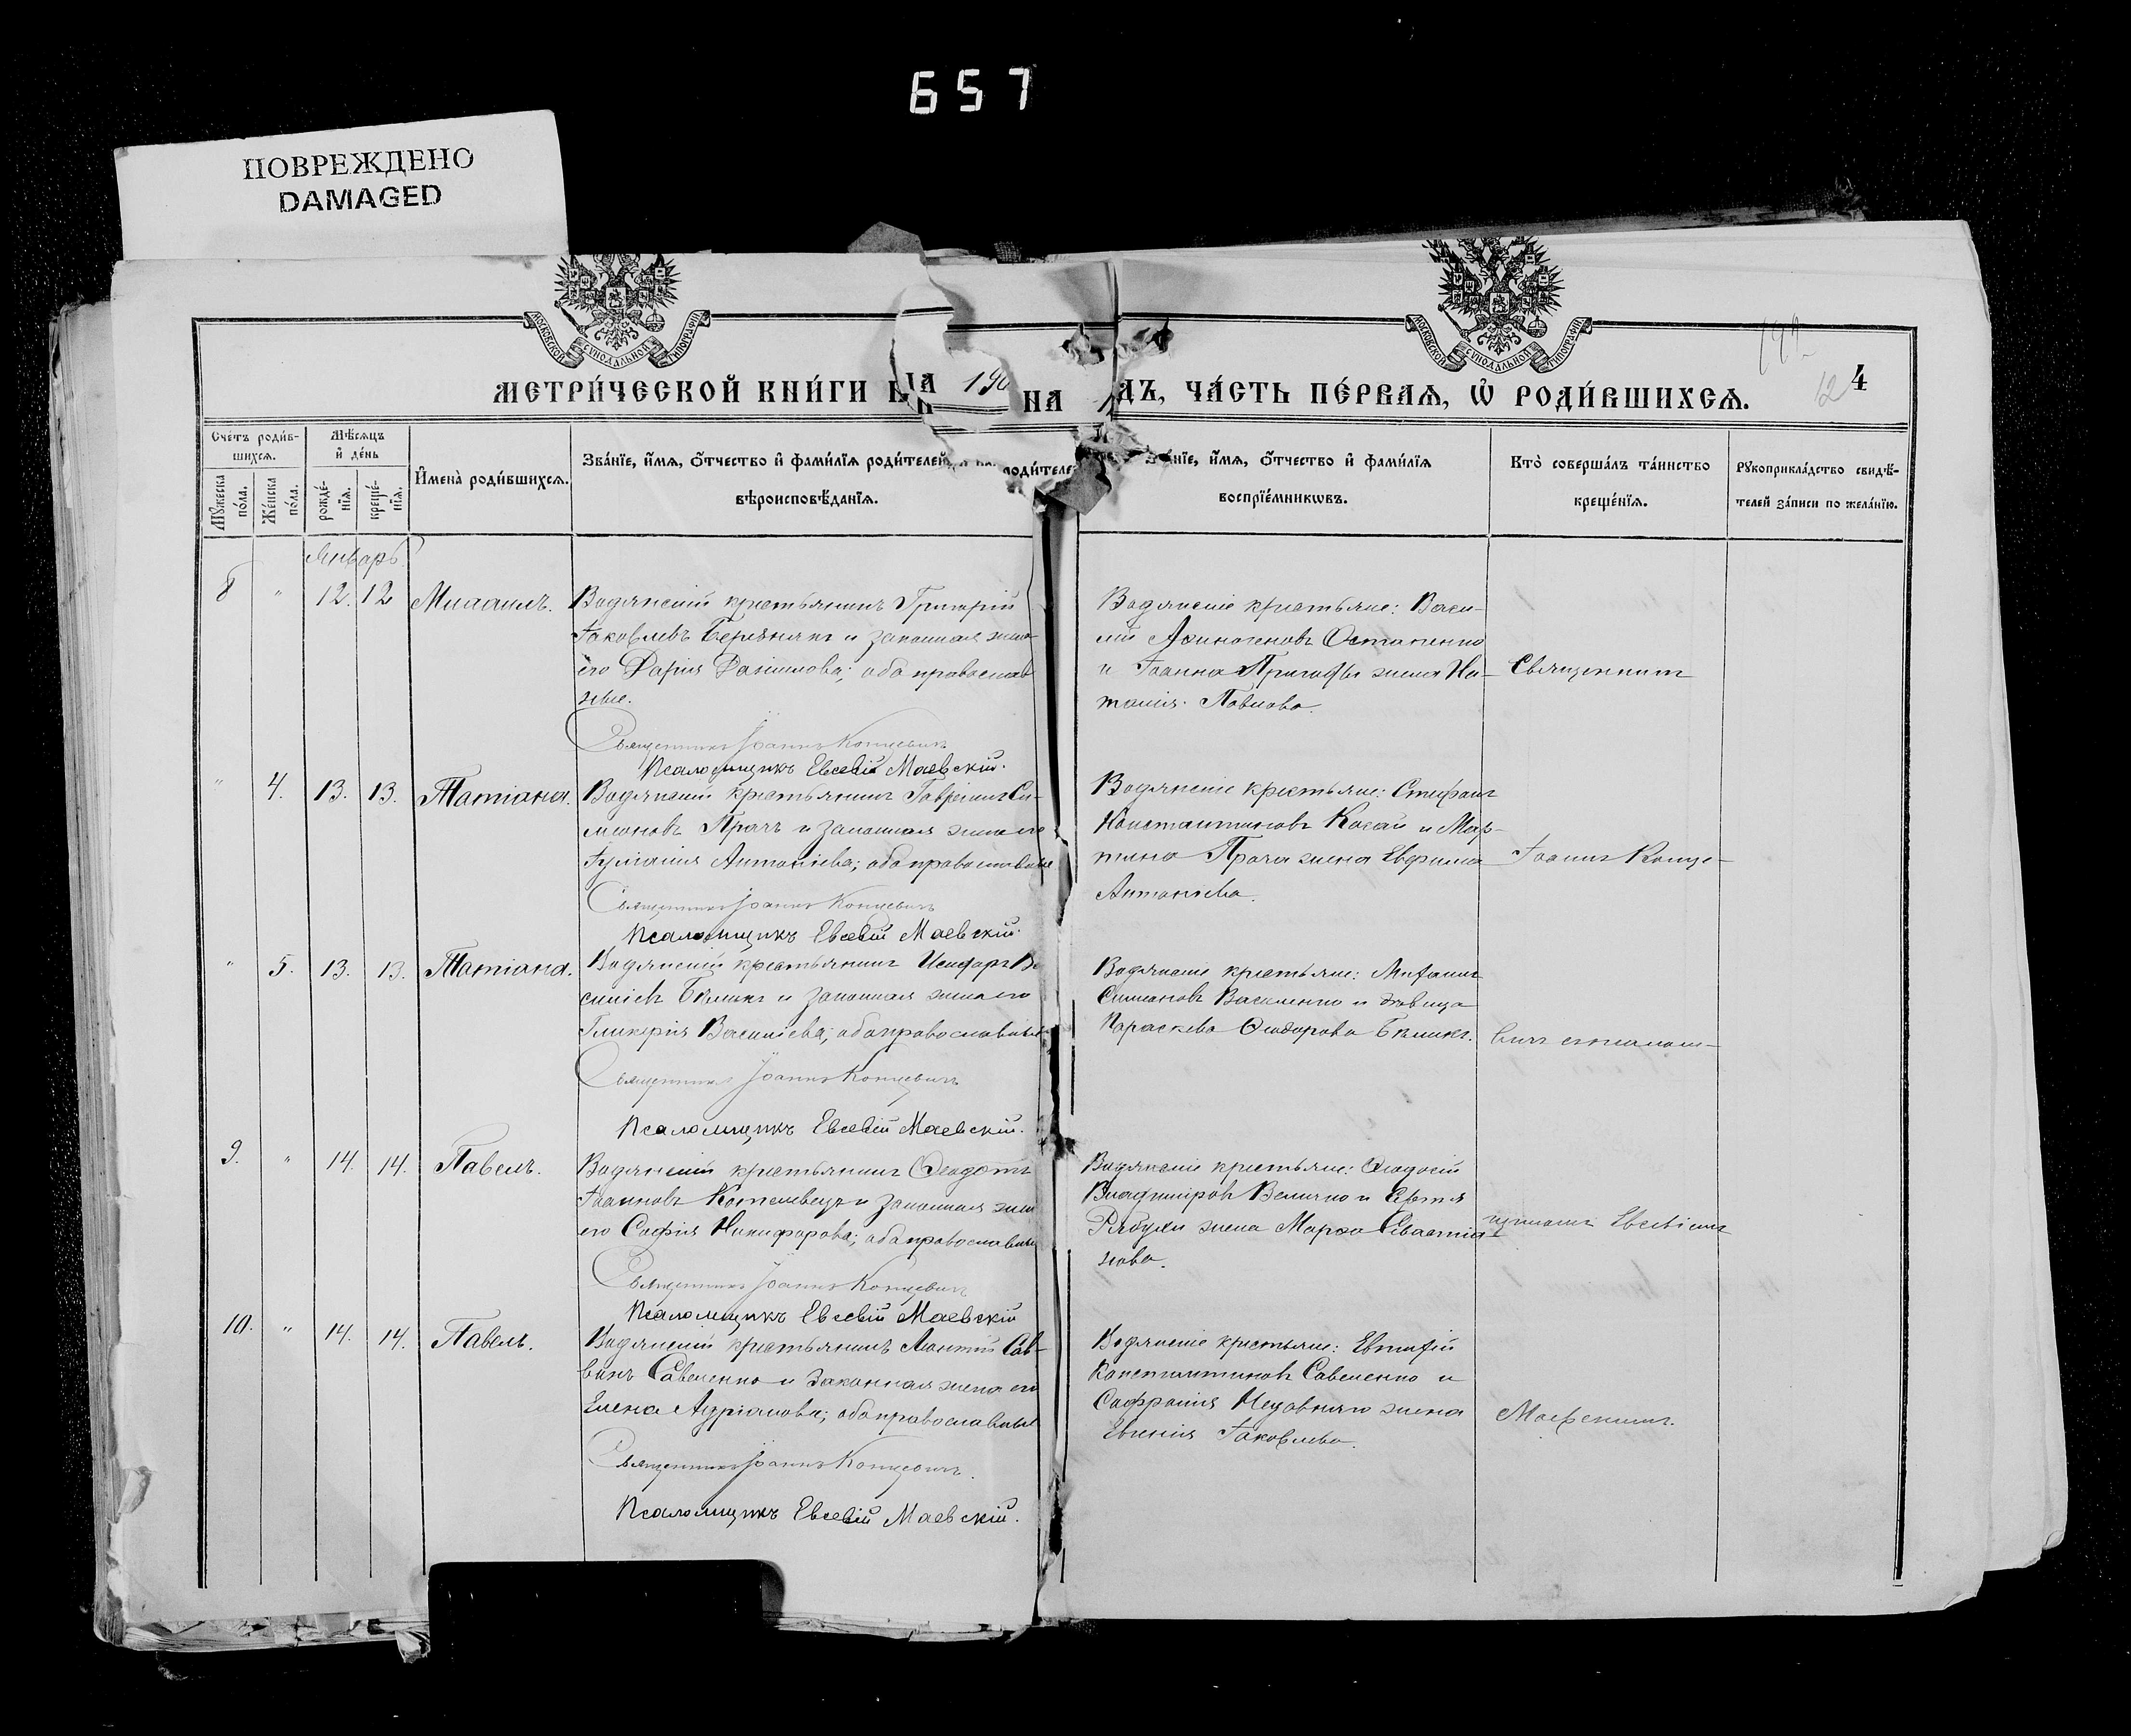 657
ПОВРЕЖДЕНО
DAMAGED
МОСКОВСКОЙ СѴНОДАЛЬНОЙ ТИПОГРАФІИ
МОСКОВСКОЙ СѴНОДАЛЬНОЙ ТИПОГРАФІИ
МЕТРИ́ЧЕСКОЙ КНИ́ГИ НА 190
НА ДЪ, ЧА́СТЬ ПЕ́РВАѦ, Ѡ҆ РОДИ́ВШИХСѦ.
12 4
Счетъ роди́в-
шихсѧ.
Мꙋжеска по́ла.
Же́нска по́ла.
Мѣ́сѧцъ
и҆ де́нь
рожде́-нїѧ.
креще́-нїѧ.
И҆мена̀ роди́вшихсѧ.
Зва́нїе, и҆́мѧ, о҆́тчество и҆ фами́лїѧ роди́телей,
вѣроисповѣ́данїѧ.
Зва́нїе, и҆́мѧ, о҆́тчество и҆ фами́лїѧ
воспрїе́мникѡвъ.
Кто̀ соверша́лъ та́инство
креще́нїѧ.
Рꙋкоприкла́дство свидѣ́-
телей за́писи по жела́нїю.
Январь
8 " 12. 12 Михаилъ.
Водянскій крестьянинъ Григорій
Іаковлевъ Березнякъ и законная жена
его Дарія Даніилова; оба православ
ные.
Священникъ Іоаннъ Концевичъ
Псаломщикъ Евсевій Маевскій.
Водянскіе крестьяне: Васи-
лій Аѳиногеновъ Остапенко
и Іоанна Пригоды жена На-
талія Павлова.
Священникъ
" 4. 13. 13. Татіана.
Водянскій крестьянинъ Гавріилъ Си-
меоновъ Прачъ и законная жена его
Іуліанія Антоніева; оба православные
Священникъ Іоаннъ Концевичъ
Псаломщикъ Евсевій Маевскій.
Водянскіе крестьяне: Стефанъ
Константиновъ Косай и Мар-
тина Прача жена Евфимія
Антоніева.
Іоаннъ Конце-
" 5. 13. 13. Татіана.
Водянскій крестьянинъ Исидоръ Ва
силіевъ Бѣликъ и законная жена его
Гликерія Василіева; оба православные
Священникъ Іоаннъ Концевичъ
Псаломщикъ Евсевій Маевскій.
Водянскіе крестьяне: Михаилъ
Симеоновъ Василенко и дѣвица
Параскева Ѳеодорова Бѣликъ.
вичъ съ псалом-
9. " 14. 14. Павелъ.
Водянскій крестьянинъ Ѳеодотъ
Іоанновъ Котелевецъ и законная жена
его Софія Никифорова; оба православные
Священникъ Іоаннъ Концевичъ
Псаломщикъ Евсевій Маевскій
Водянскіе крестьяне: Ѳеодосій
Владиміровъ Величко и Сергія
Рябухи жена Марѳа Севастіа-
нова.
щикомъ Евсевіемъ
10. " 14. 14. Павелъ.
Водянскій крестьянинъ Леонтій Сав-
винъ Савеленко и законная жена его
Елена Адріанова; оба православные
Священникъ Іоаннъ Концевичъ.
Псаломщикъ Евсевій Маевскій.
Водянскіе крестьяне: Евтихій
Константиновъ Савеленко и
Софронія жена
Евгенія Іаковлева.
Маевскимъ.